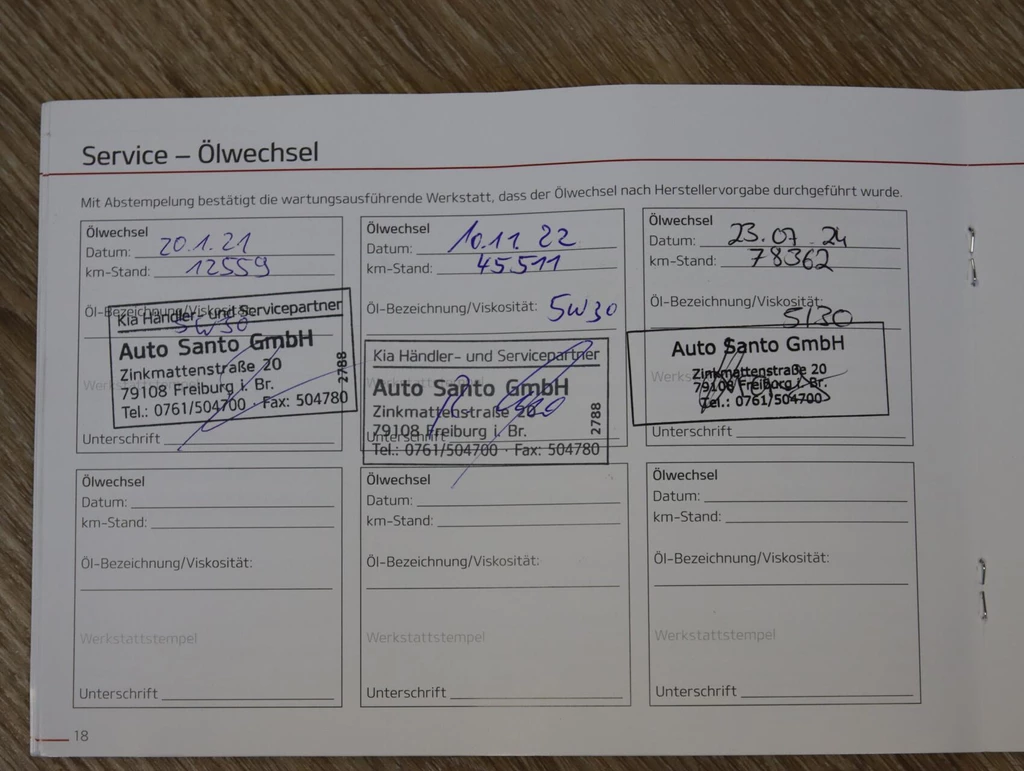 Service – Ölwechsel
Mit Abstempelung bestätigt die wartungsausführende Werkstatt, dass der Ölwechsel nach Herstellervorgabe durchgeführt wurde.
Ölwechsel
Datum: 20.1.21
km-Stand: 12559
Öl-Bezeichnung/Viskosität:
5W30
Kia Händler- und Servicepartner
Auto Santo GmbH
Zinkmattenstraße 20
79108 Freiburg i. Br.
Tel.: 0761/504700 · Fax: 504780
2788
Werkstattstempel
Unterschrift
Ölwechsel
Datum: 10.11 22
km-Stand: 45511
Öl-Bezeichnung/Viskosität: 5W30
Kia Händler- und Servicepartner
Auto Santo GmbH
Zinkmattenstraße 20
79108 Freiburg i. Br.
Tel.: 0761/504700 · Fax: 504780
2788
Werkstattstempel
Unterschrift
Ölwechsel
Datum: 23.07.24
km-Stand: 78362
Öl-Bezeichnung/Viskosität:
5/30
Auto Santo GmbH
Zinkmattenstraße 20
79108 Freiburg i. Br.
Tel.: 0761/504700
Werkstattstempel
Unterschrift
Ölwechsel
Datum:
km-Stand:
Öl-Bezeichnung/Viskosität:
Werkstattstempel
Unterschrift
Ölwechsel
Datum:
km-Stand:
Öl-Bezeichnung/Viskosität:
Werkstattstempel
Unterschrift
Ölwechsel
Datum:
km-Stand:
Öl-Bezeichnung/Viskosität:
Werkstattstempel
Unterschrift
18